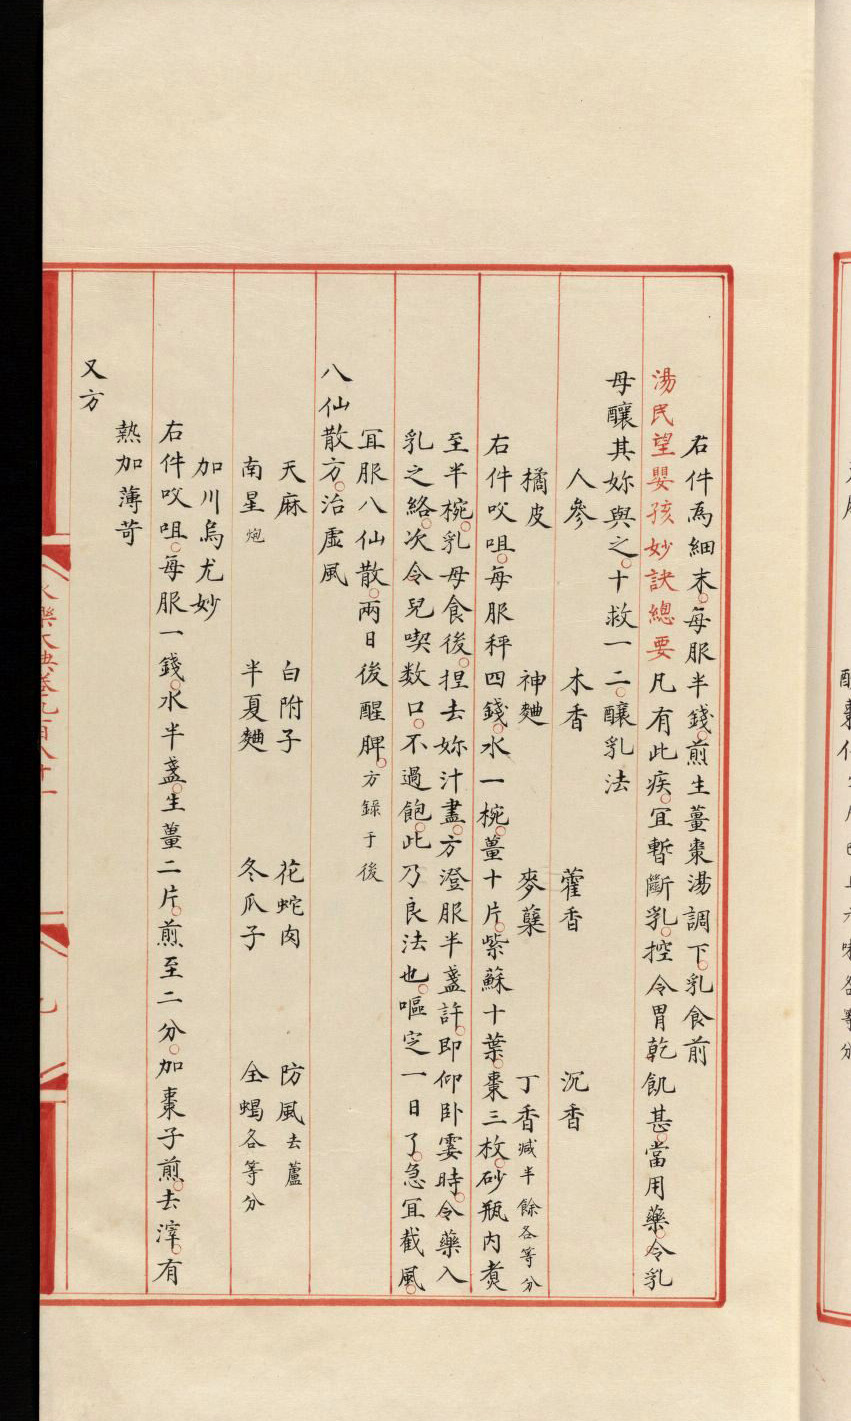 右件爲細末每服半錢煎生薑棗湯調下乳食前
湯民望嬰孩妙訣總要凡有此疾宜暫斷乳控令胃乾飢甚當用藥令乳
母釀其妳與之十救一二釀乳法
人參 木香 藿香 沉香
橘皮 神麯 麥蘗 丁香減半餘各等分
右件㕮咀每服秤四錢水一椀薑十片紫蘇十葉棗三枚砂瓶內煑
至半椀乳母食後揑去妳汁盡方澄服半盞許即仰卧霎時令藥入
乳之絡次令兒喫数口不過飽此乃良法也嘔定一日了急宜截風
宜服八仙散兩日後醒脾方録于後
八仙散方治虛風
天麻 白附子 花蛇肉 防風去蘆
南星炮 半夏麯 冬瓜子 全蝎各等分
加川烏尤妙
右件㕮咀每服一錢水半盞生薑二片煎至二分加棗子煎去滓有
熱加薄苛
又方